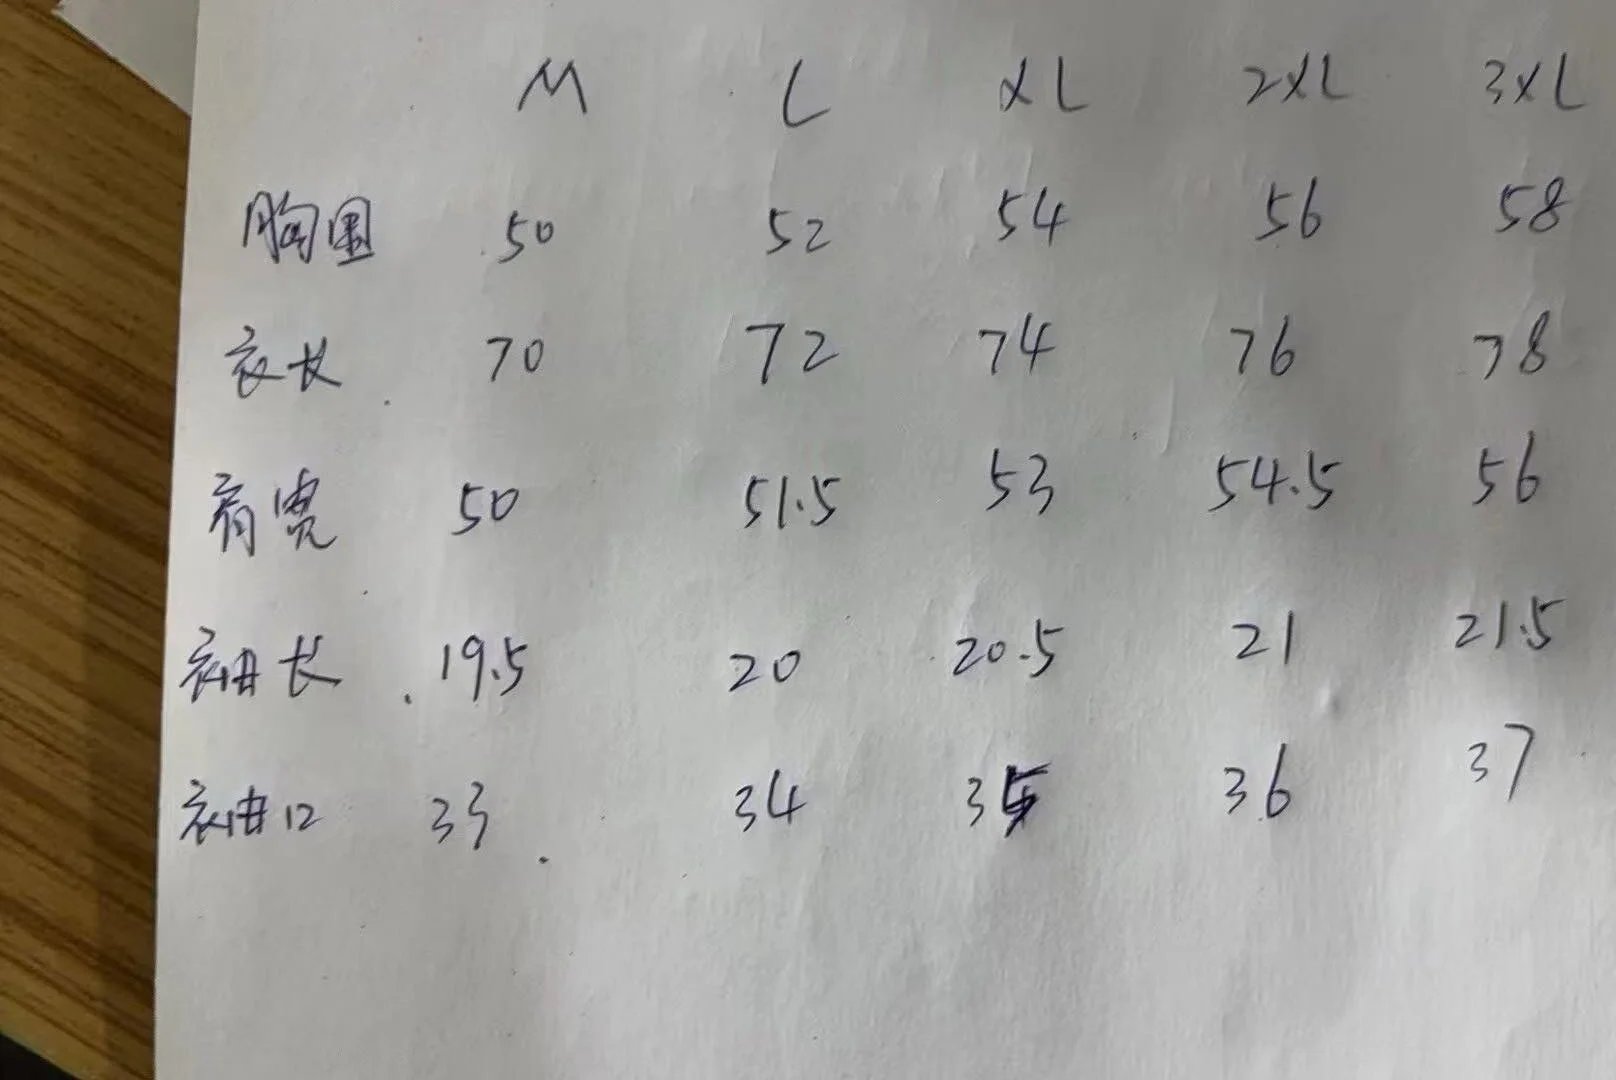 M L XL 2XL 3XL
胸围 50 52 54 56 58
衣长 70 72 74 76 78
肩宽 50 51.5 53 54.5 56
袖长 19.5 20 20.5 21 21.5
袖口 33 34 35 36 37